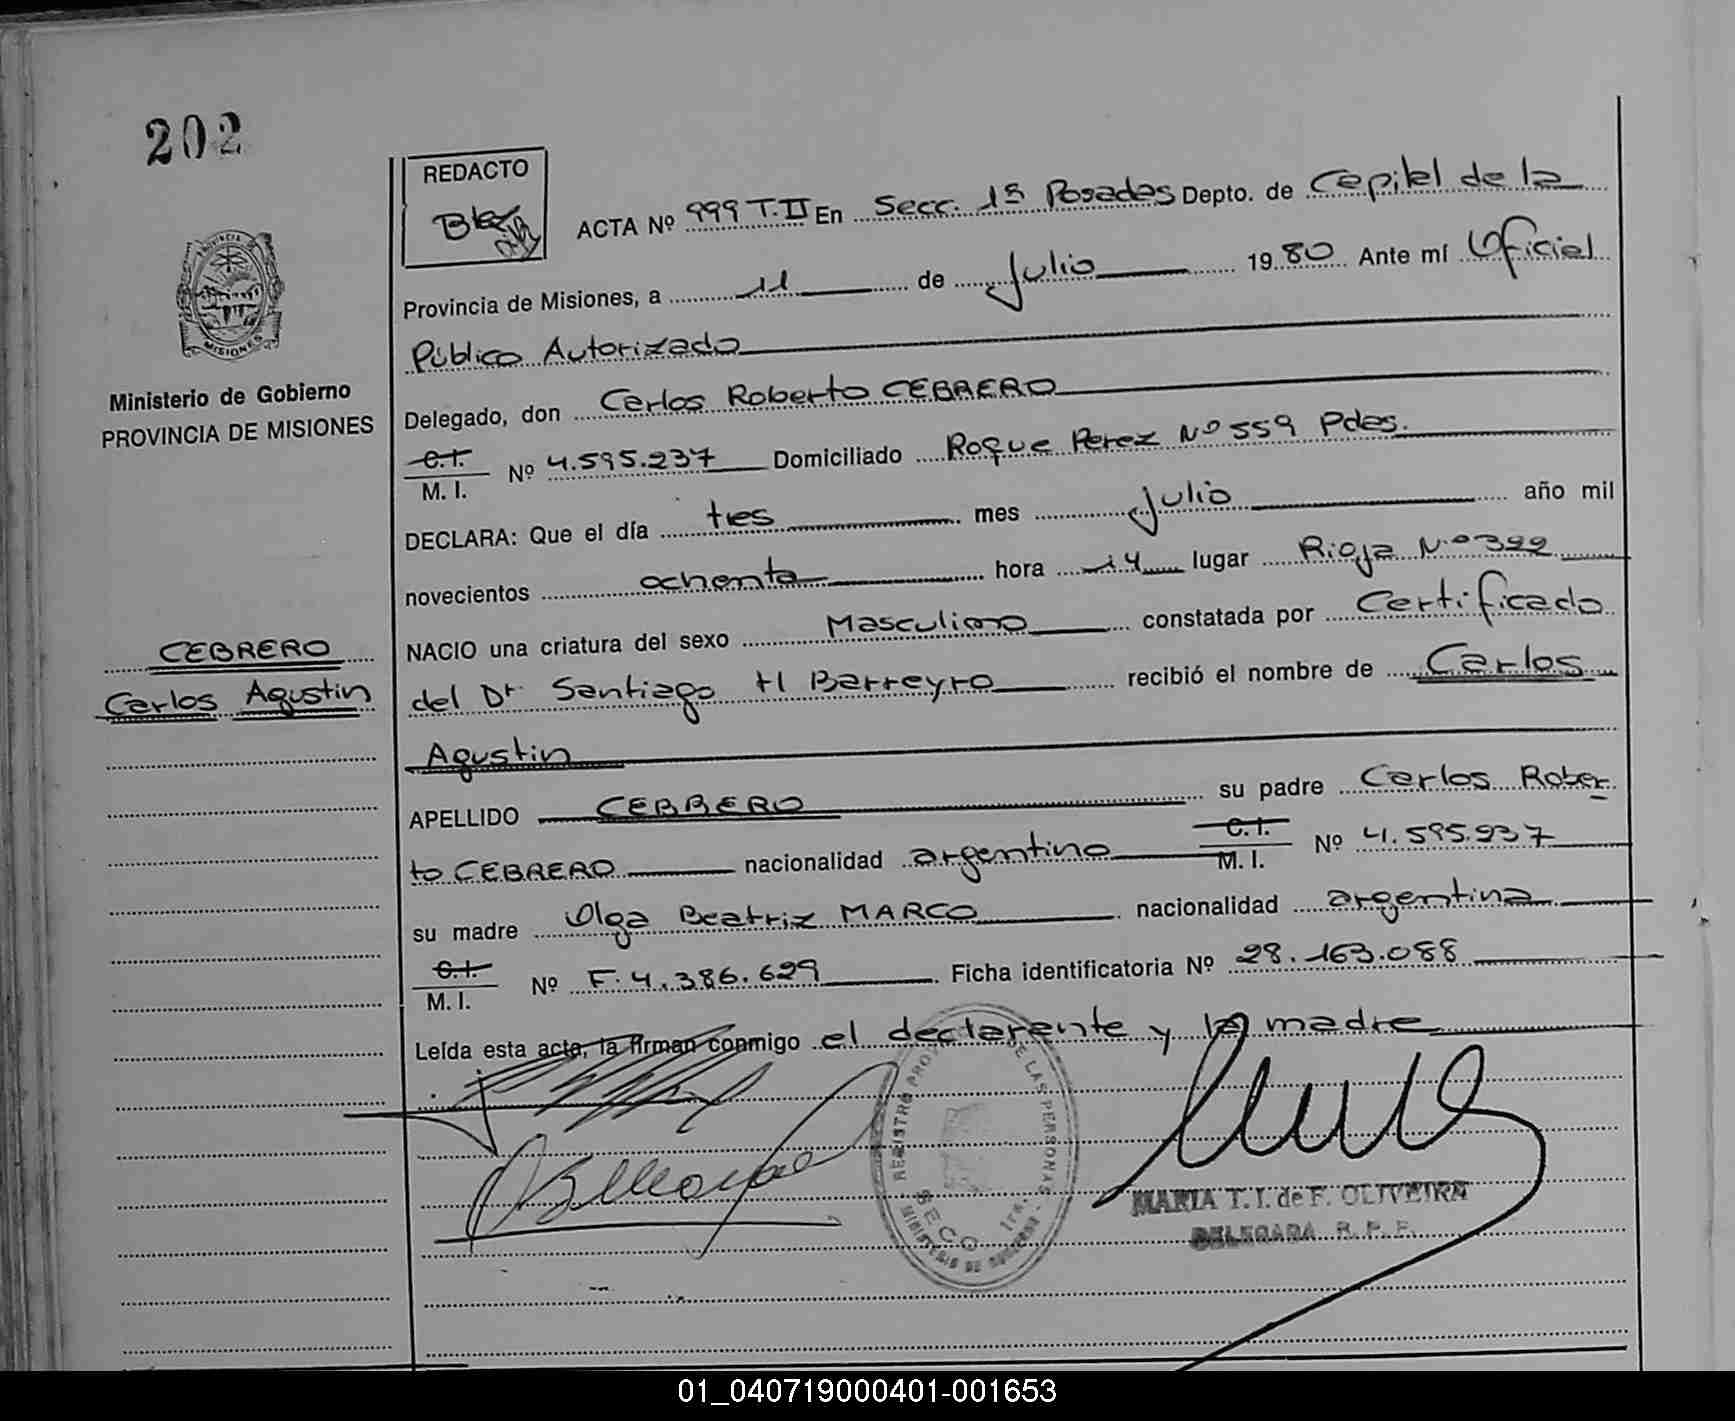 202
REDACTO
ACTA Nº 999 T. II En Secc. 1ª Posadas Depto. de Capital de la
Provincia de Misiones, a 11 de Julio 1980 Ante mí Oficial
Público Autorizado
PROVINCIA
MISIONES
Ministerio de Gobierno
PROVINCIA DE MISIONES
Delegado, don Carlos Roberto CEBRERO
C.I.
M. I. Nº 4.595.237 Domiciliado Roque Perez Nº 559 Pdas.
DECLARA: Que el día tres mes julio año mil
novecientos ochenta hora 14 lugar Rioja Nº 392
NACIO una criatura del sexo Masculino constatada por Certificado
CEBRERO
Carlos Agustin
del Dr Santiago H Barreyro recibió el nombre de Carlos
Agustin
APELLIDO CEBRERO su padre Carlos Rober
to CEBRERO nacionalidad argentino C.I. M. I. Nº 4.595.237
su madre Olga Beatriz MARCO nacionalidad argentina
C.I.
M. I. Nº F. 4.386.629 Ficha identificatoria Nº 28.163.088
Leída esta acta, la firman conmigo el declarante y la madre
REGISTRO PROV DE LAS PERSONAS
MARIA T. I. de F. OLIVEIRA
DELEGADA R. P. P.
01_040719000401-001653